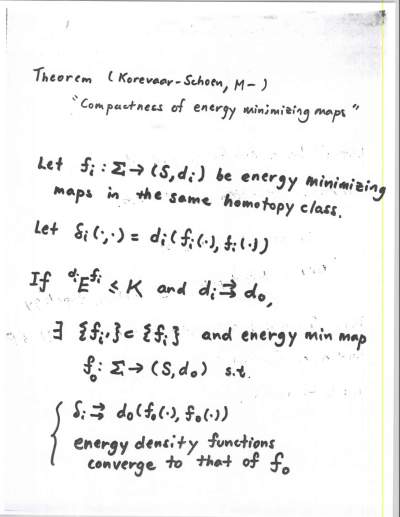 Theorem (Korevaar-Schoen, M-)
"Compactness of energy minimizing maps"
Let fᵢ : Σ → (S, dᵢ) be energy minimizing
maps in the same homotopy class.
Let δᵢ(·,·) = dᵢ(fᵢ(·), fᵢ(·))
If ᵈⁱEᶠⁱ ≤ K and dᵢ ⇉ d₀,
∃ {fᵢ'} ⊂ {fᵢ} and energy min map
f₀ : Σ → (S, d₀) s.t.
{ δᵢ ⇉ d₀(f₀(·), f₀(·))
energy density functions
converge to that of f₀